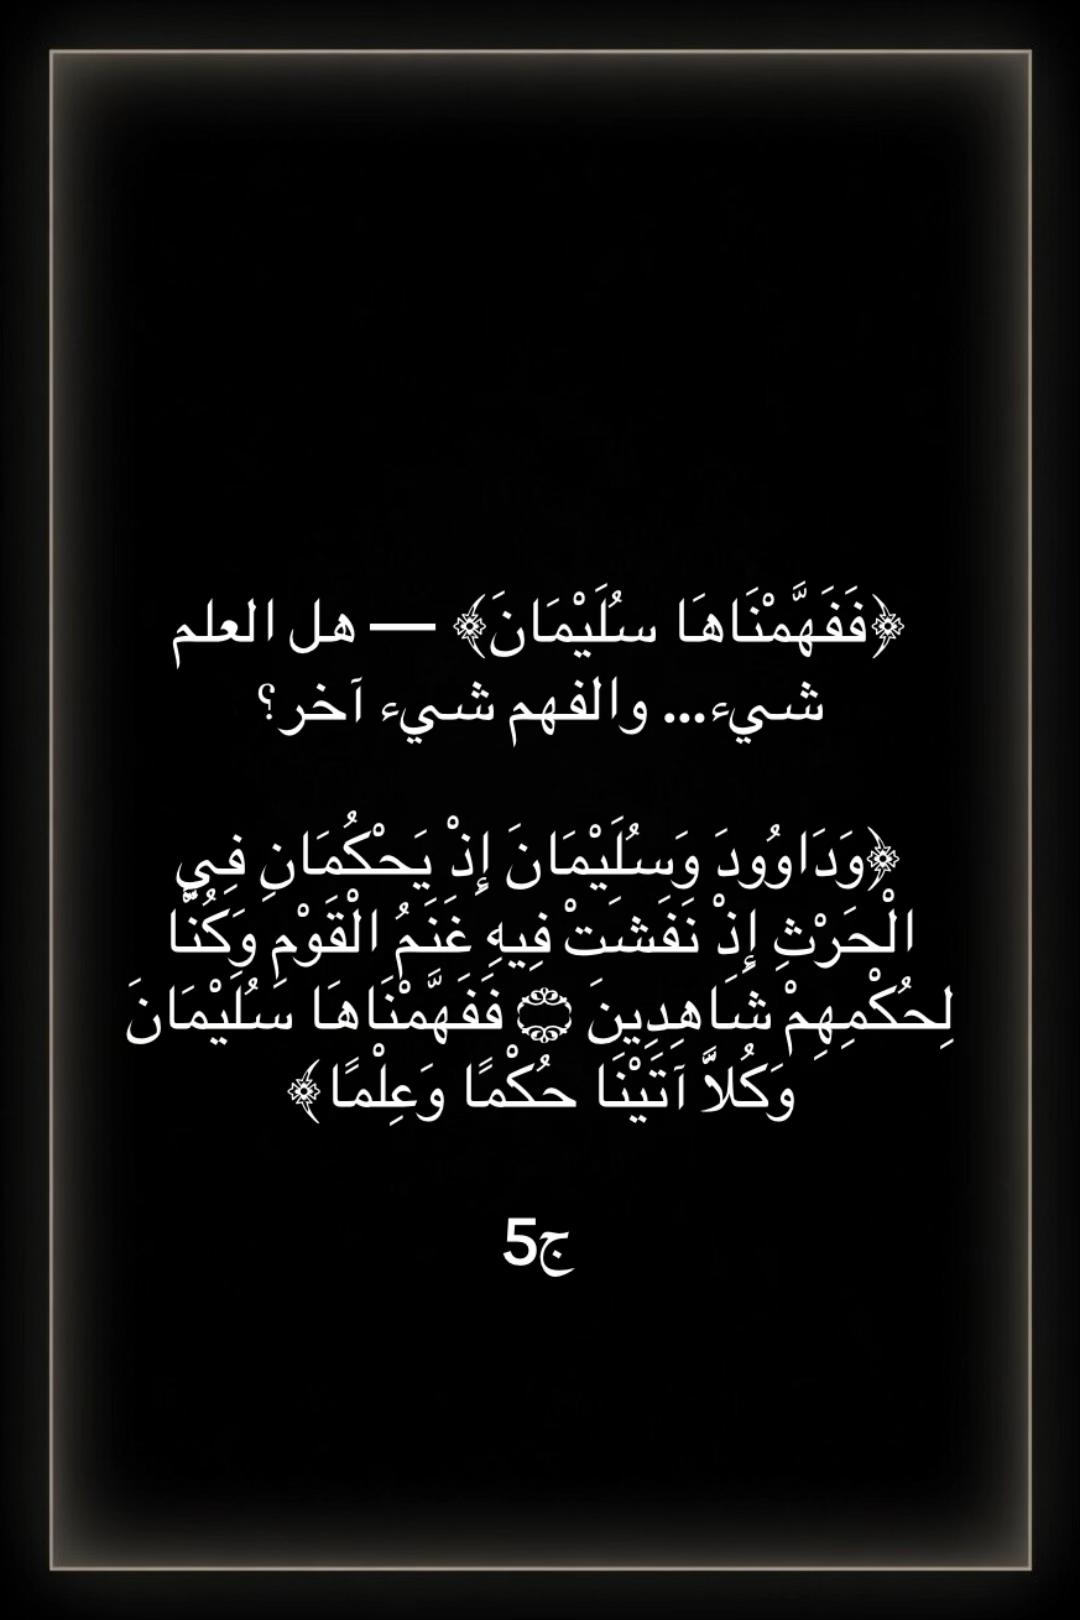 ﴿فَفَهَّمْنَاهَا سُلَيْمَانَ﴾ — هل العلم
شيء... والفهم شيء آخر؟
﴿وَدَاوُودَ وَسُلَيْمَانَ إِذْ يَحْكُمَانِ فِي
الْحَرْثِ إِذْ نَفَشَتْ فِيهِ غَنَمُ الْقَوْمِ وَكُنَّا
لِحُكْمِهِمْ شَاهِدِينَ ۝ فَفَهَّمْنَاهَا سُلَيْمَانَ
وَكُلاًّ آتَيْنَا حُكْمًا وَعِلْمًا﴾
ج5